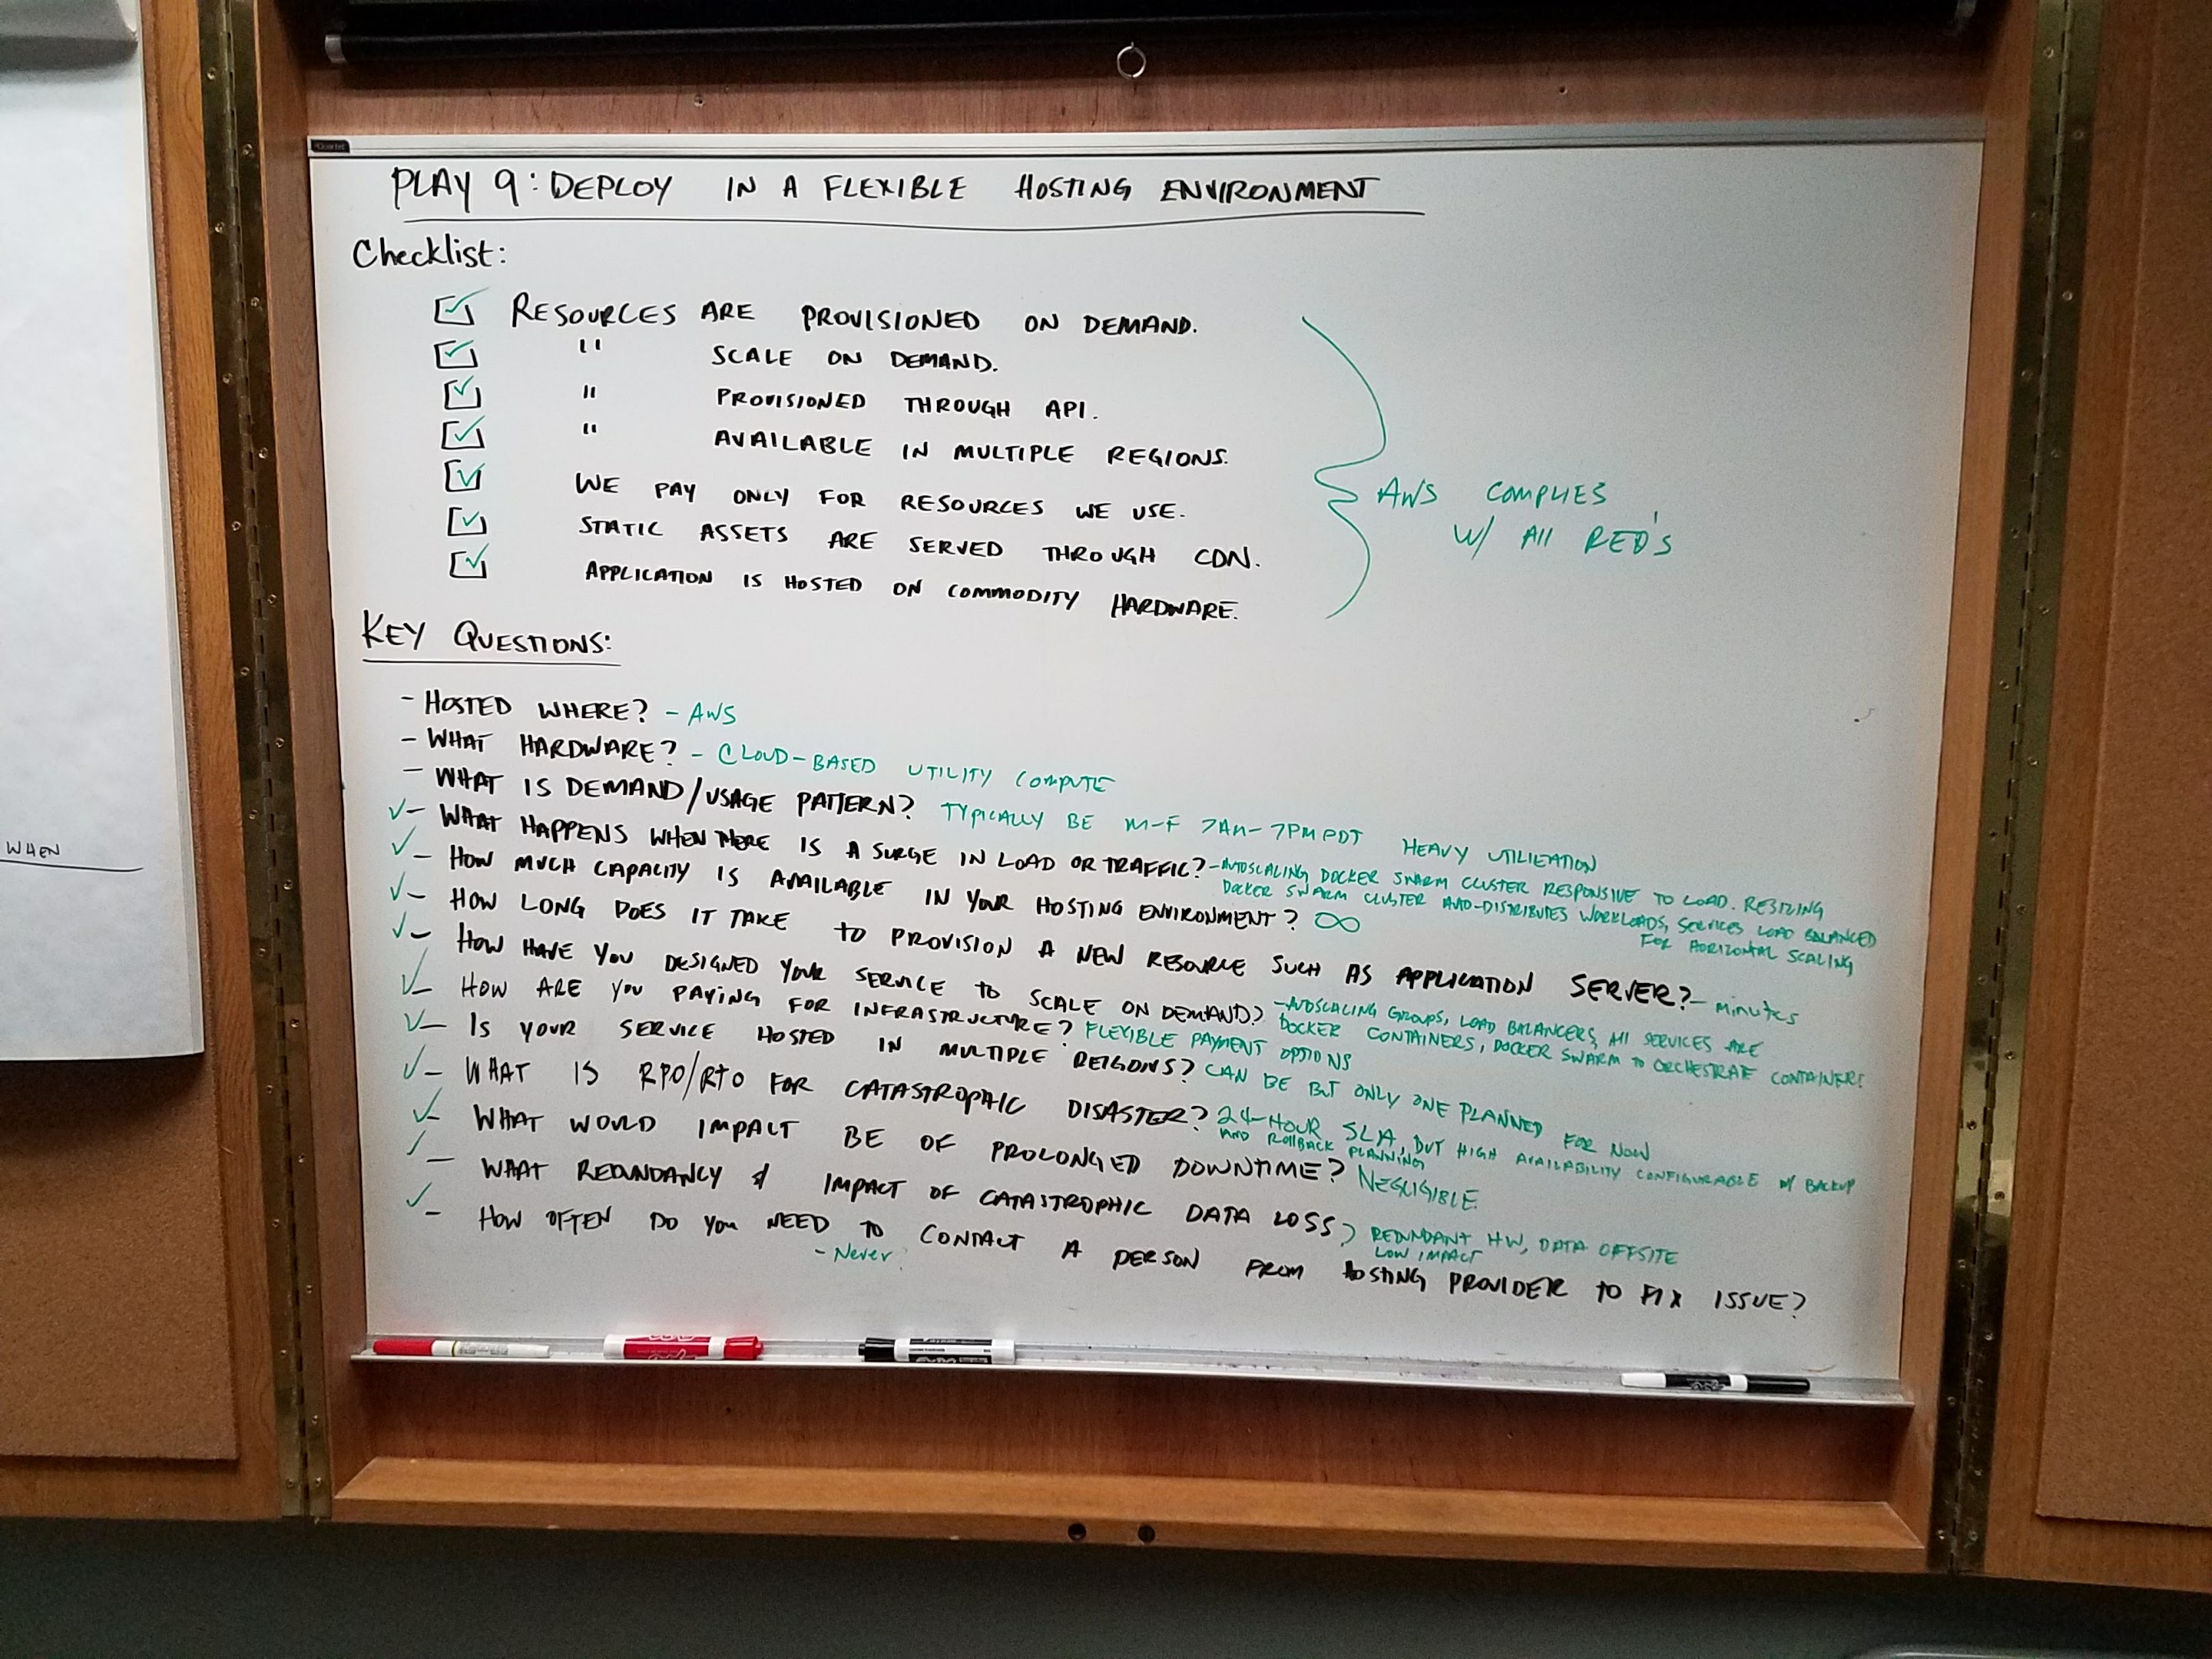 Quartet
PLAY 9: DEPLOY IN A FLEXIBLE HOSTING ENVIRONMENT
Checklist:
RESOURCES ARE PROVISIONED ON DEMAND.
" SCALE ON DEMAND.
" PROVISIONED THROUGH API.
" AVAILABLE IN MULTIPLE REGIONS.
WE PAY ONLY FOR RESOURCES WE USE.
STATIC ASSETS ARE SERVED THROUGH CDN.
APPLICATION IS HOSTED ON COMMODITY HARDWARE.
AWS COMPLIES
W/ All REQ'S
KEY QUESTIONS:
- HOSTED WHERE? - AWS
- WHAT HARDWARE? - CLOUD-BASED UTILITY COMPUTE
- WHAT IS DEMAND/USAGE PATTERN? TYPICALLY BE M-F 7AM-7PM PDT HEAVY UTILIZATION
- WHAT HAPPENS WHEN THERE IS A SURGE IN LOAD OR TRAFFIC? - AUTOSCALING DOCKER SWARM CLUSTER RESPONSIVE TO LOAD. RESIZING
DOCKER SWARM CLUSTER AUTO-DISTRIBUTES WORKLOADS, SERVICES LOAD BALANCED
FOR HORIZONTAL SCALING
- HOW MUCH CAPACITY IS AVAILABLE IN YOUR HOSTING ENVIRONMENT? ∞
- HOW LONG DOES IT TAKE TO PROVISION A NEW RESOURCE SUCH AS APPLICATION SERVER? - minutes
- HOW HAVE YOU DESIGNED YOUR SERVICE TO SCALE ON DEMAND? - AUTOSCALING GROUPS, LOAD BALANCERS, All SERVICES ARE
DOCKER CONTAINERS, DOCKER SWARM TO ORCHESTRATE CONTAINERS
- HOW ARE YOU PAYING FOR INFRASTRUCTURE? FLEXIBLE PAYMENT OPTIONS
- IS YOUR SERVICE HOSTED IN MULTIPLE REIGONS? CAN BE BUT ONLY ONE PLANNED FOR NOW
- WHAT IS RPO/RTO FOR CATASTROPHIC DISASTER? 24-HOUR SLA, BUT HIGH AVAILABILITY CONFIGURABLE W/ BACKUP
AND ROllBACK PLANNING
- WHAT WOULD IMPACT BE OF PROLONGED DOWNTIME? NEGLIGIBLE
- WHAT REDUNDANCY & IMPACT OF CATASTROPHIC DATA LOSS? REDUNDANT HW, DATA OFFSITE
LOW IMPACT
- HOW OFTEN DO YOU NEED TO CONTACT A PERSON FROM HOSTING PROVIDER TO FIX ISSUE?
- Never
WHEN
EXPO